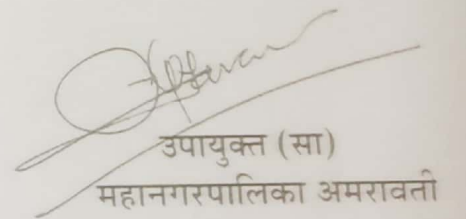 उपायुक्त (सा)
महानगरपालिका अमरावती